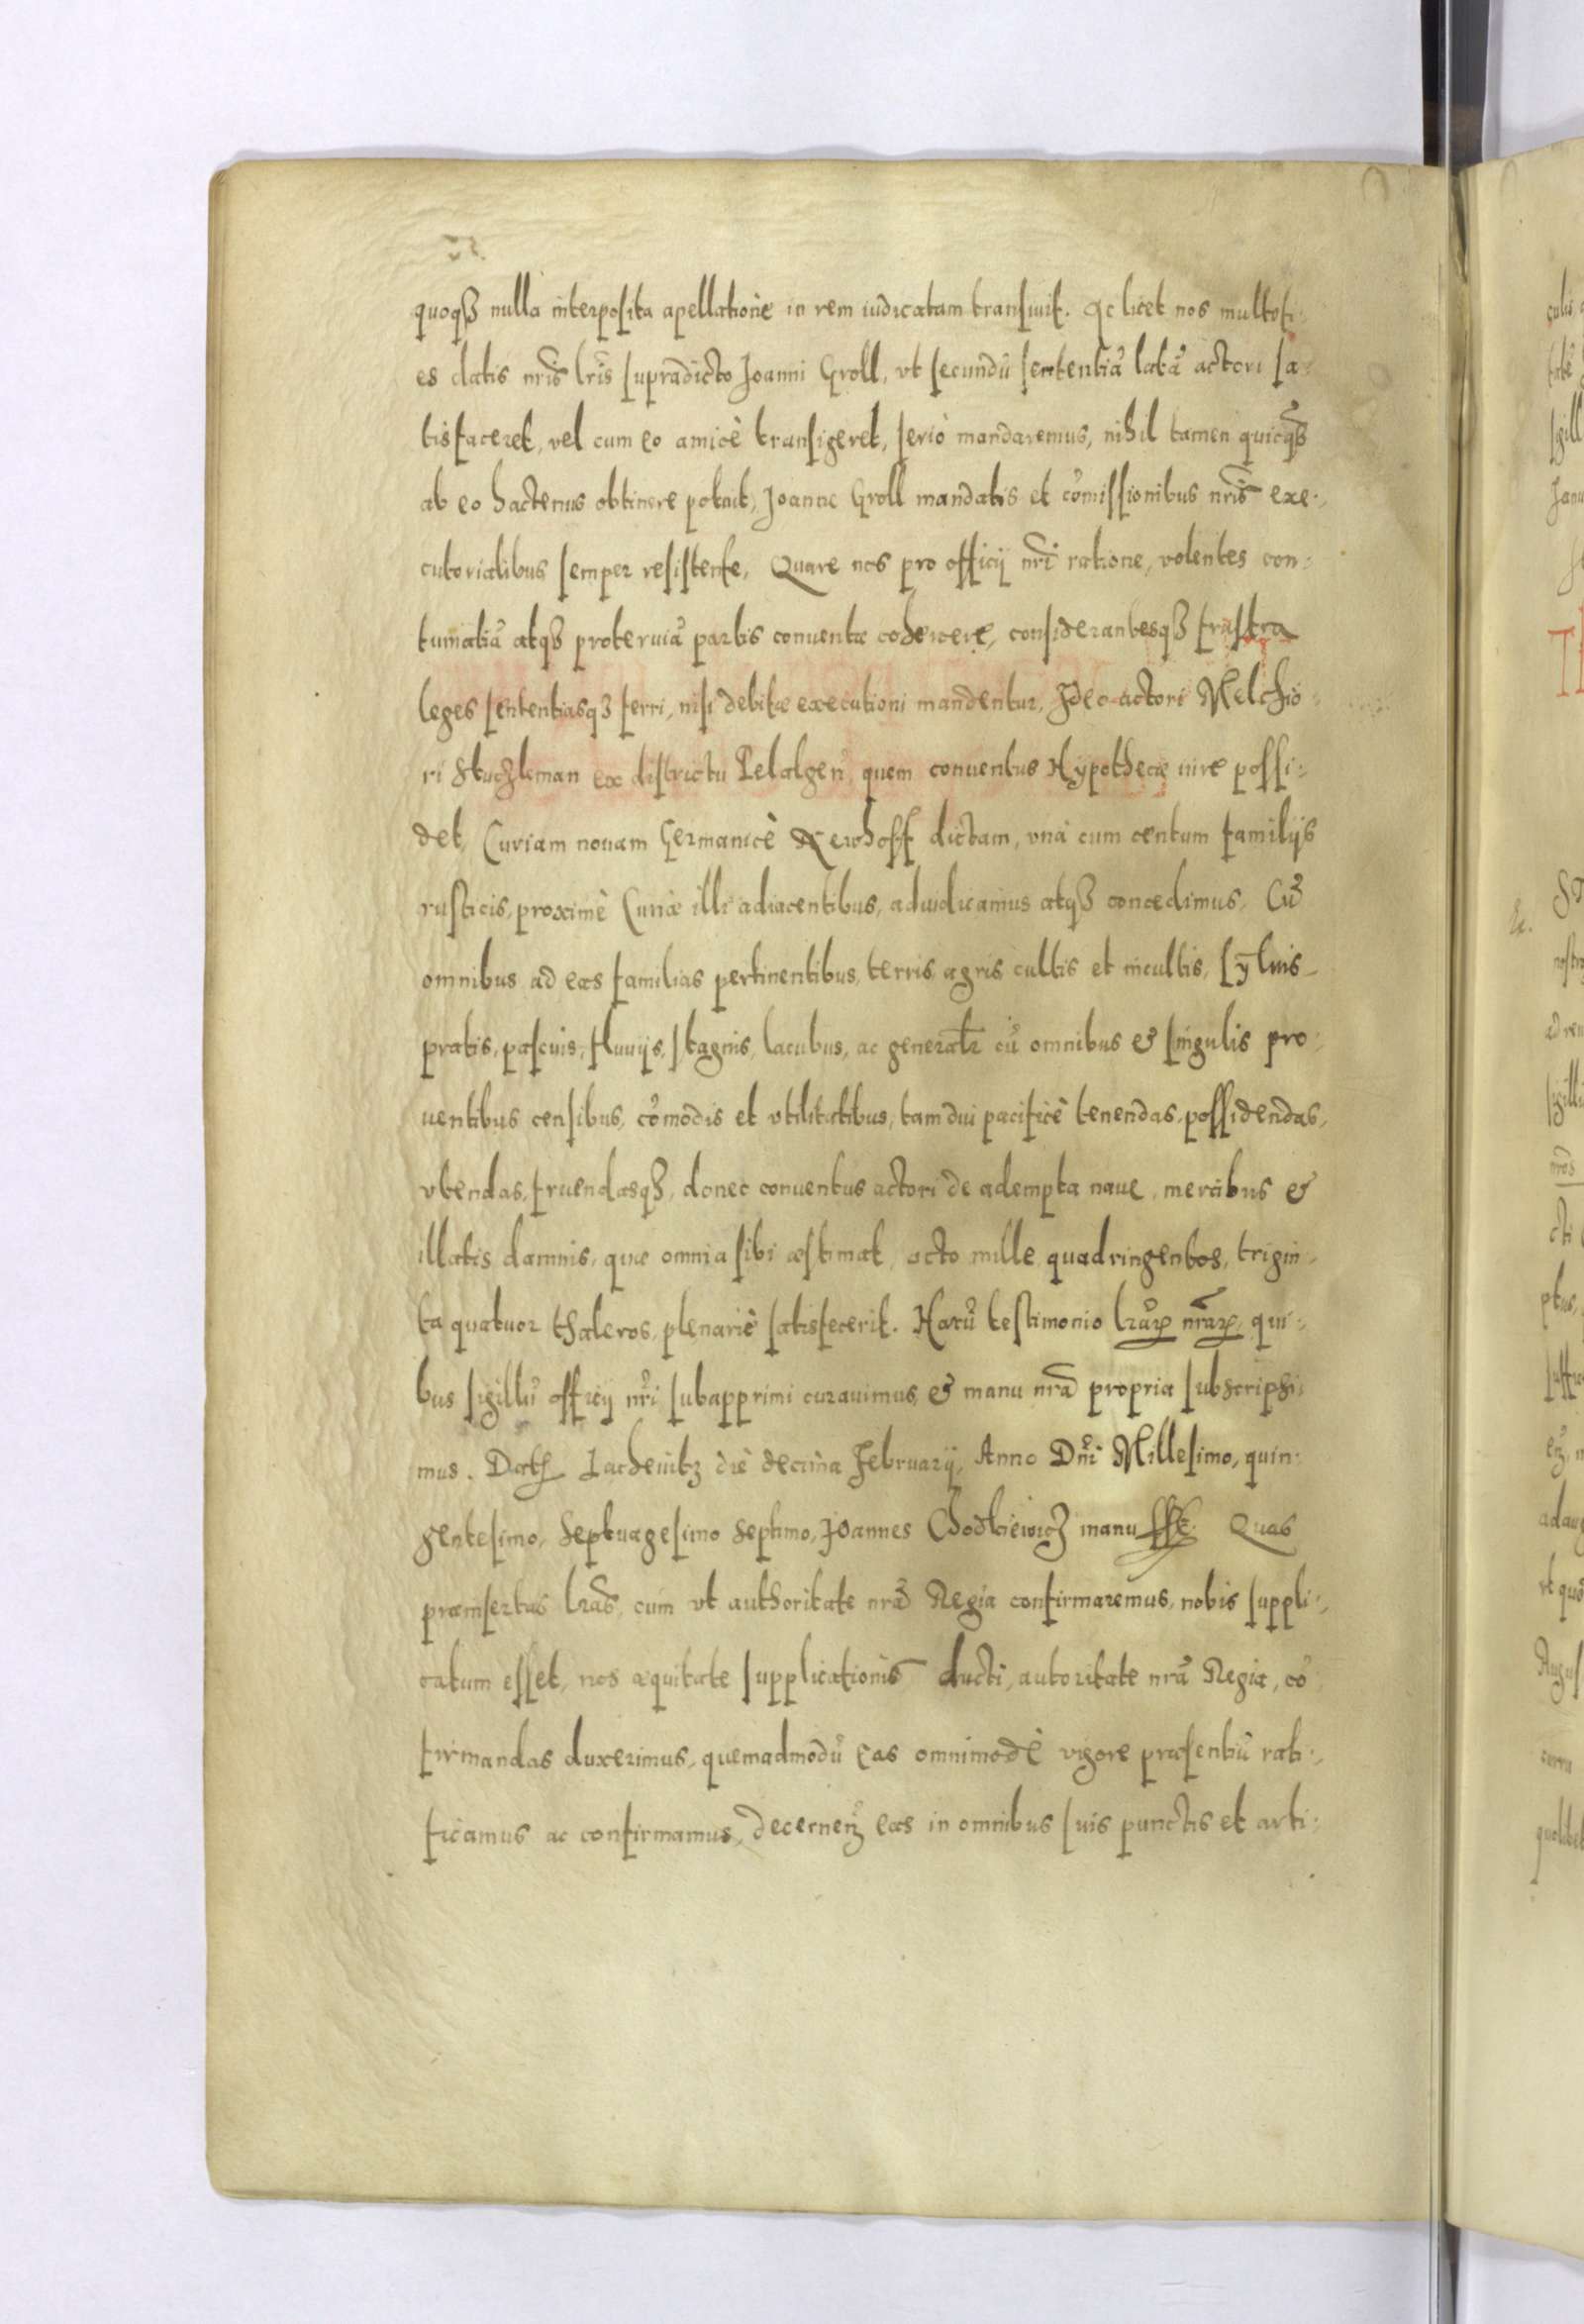 quoqʒ nulla interposita apellatione in rem iudicatam transiuit. Ac licet nos multoti:
es datis nrīs lrīs supradicto Joanni Groll, vt secundū sententiā latā actori sa-
tisfaceret, vel cum eo amicè transigeret, seriò mandaremus, nihil tamen quicqʒ
ab eo hactenus obtinere potuit, Joanne Groll mandatis et cōmissionibus nrīs exe:
cutorialibus semper resistente, Quare nos pro officij nrī ratione, volentes con:
tumatiā atqʒ proteruiā partis conuentæ cohercere, considerantesqʒ frustra
leges sententiasqʒ ferri, nisi debitæ executioni mandentur, Ideo actori Melchio:
ri Stuczleman ex districtu Pelalgen̄ quem conuentus Hypothecæ iure possi:
det, Curiam nouam Germanicè Newhoff dictam, vnà cum centum familijs
rusticis, proximè Curiæ illi adiacentibus, adiudicamus atqʒ concedimus, Cū
omnibus ad eas familias pertinentibus, terris agris cultis et incultis, syluis
pratis, pascuis, fluuijs, stagnis, lacubus, ac generalr̄ cū omnibus & singulis pro:
uentibus censibus, cōmodis et vtilitatibus, tam diu pacificè tenendas, possidendas,
vtendas, fruendasqʒ, donec conuentus actori de adempta naue, mercibus &
illatis damnis, quæ omnia sibi æstimat, octo mille quadringentos, trigin:
ta quatuor thaleros, plenariè satisfecerit. Harū testimonio lrārꝝ nrārꝝ, qui:
bus sigillū officij nrī subapprimi curauimus, & manu nrā propria subscripsi:
mus. Dat Lacheuitz die decima February, Anno Dnī Millesimo, quin:
gentesimo, Septuagesimo septimo, Joannes Chodkiewicz manu sst. Quas
præinsertas lrās, cum vt authoritate nrā Regia confirmaremus, nobis suppli:
catum esset, nos æquitate supplicationis ducti, autoritate nrā Regia, cō
firmandas duxerimus, quemadmodū eas omnimodè vigore præsentiū rati:
ficamus ac confirmamus, decernen̄ eas in omnibus suis punctis et arti: